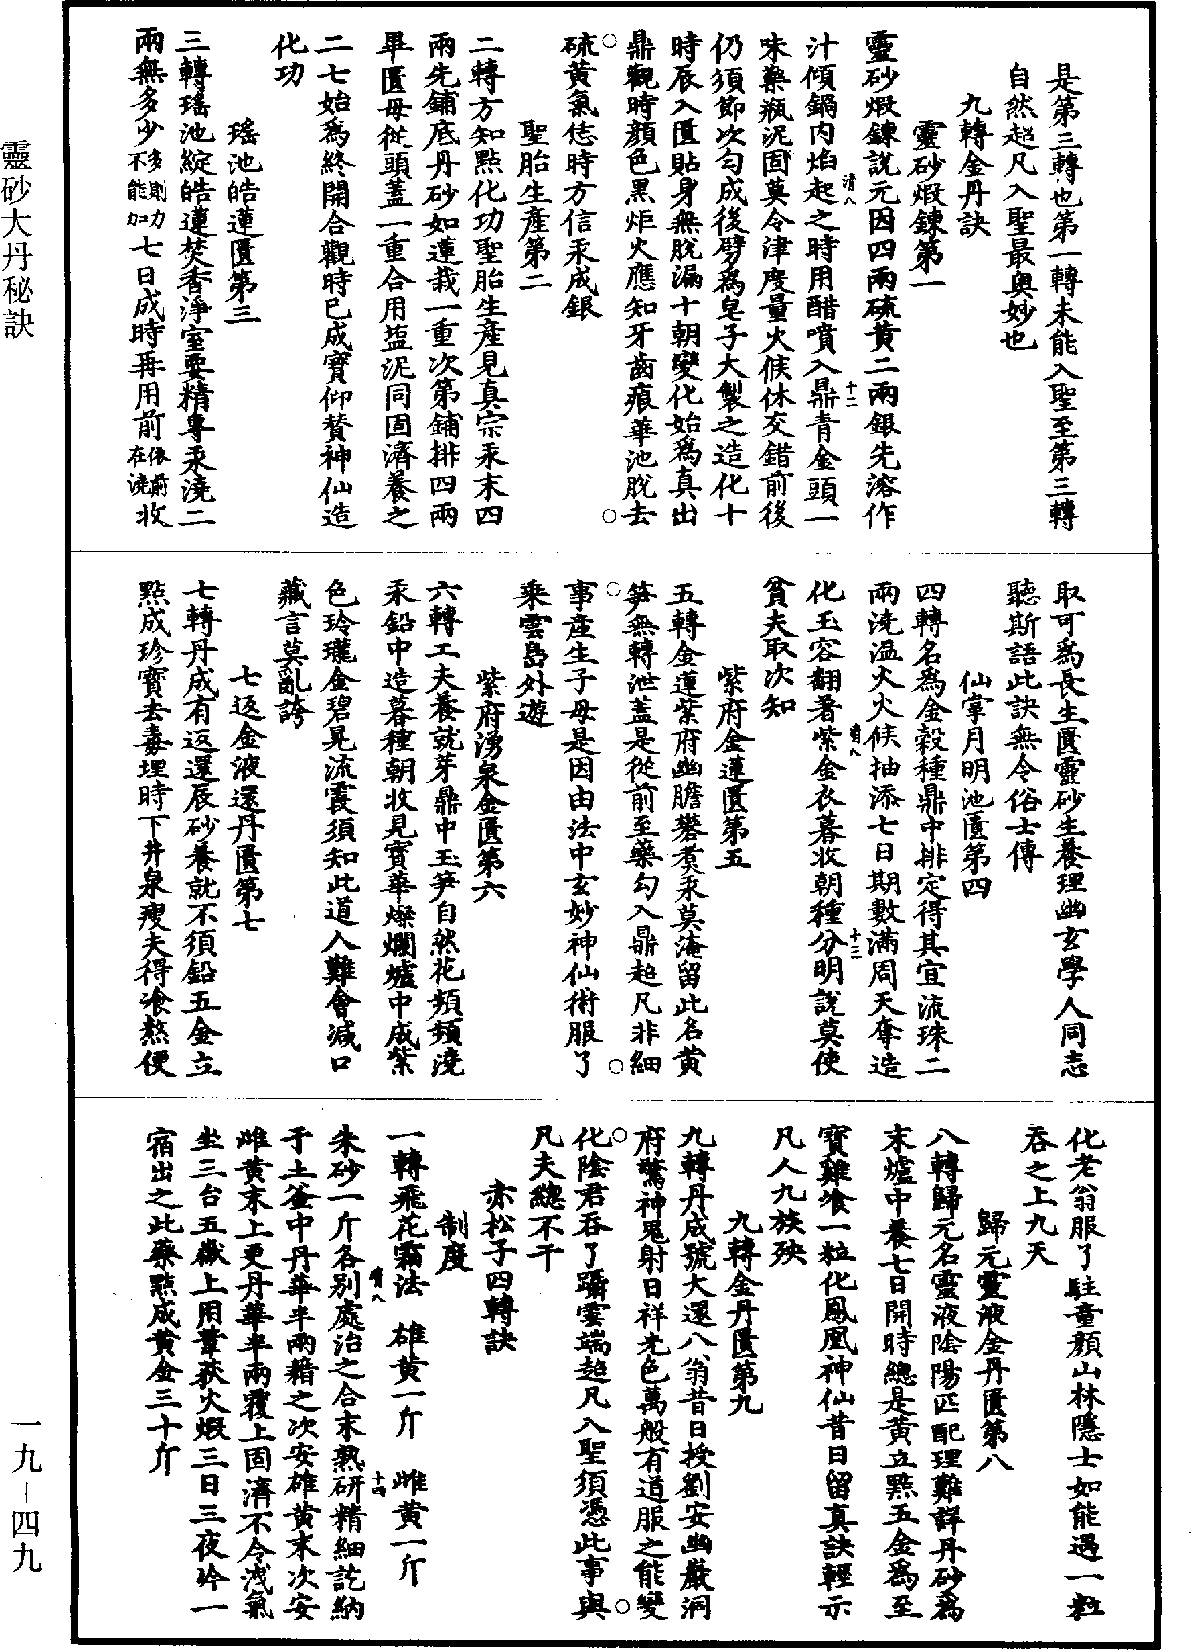 靈砂大丹秘訣
是第三轉也第一轉未能入聖至第三轉
自然超凡入聖最奧妙也
九轉金丹訣
靈砂煆鍊第一
靈砂煆鍊說元因四兩硫黃二兩銀先溶作
汁傾鍋內焰起之時用醋噴入鼎青金頭一
味藥瓶泥固莫令津度量火候休交錯前後
仍須節次勻成後劈為皂子大製之造化十
時辰入匱貼身無脫漏十朝變化始為真出
鼎觀時顏色黑炬火應知牙齒痕華池脫去
硫黃氣恁時方信汞成銀
聖胎生產第二
二轉方知點化功聖胎生產見真宗汞末四
兩先鋪底丹砂如蓮栽一重次第鋪排四兩
畢匱母從頭蓋一重合用盐泥同固濟養之
二七始為終開合觀時已成寶仰賛神仙造
化功
瑤池皓蓮匱第三
三轉瑤池綻皓蓮焚香淨室要精專汞澆二
兩無多少多則力不能加七日成時再用前依前在澆收
取可為長生匱靈砂生養理幽玄學人同志
聽斯語此訣無令俗士傳
仙掌月明池匱第四
四轉名為金穀種鼎中排定得其宜流珠二
兩澆温火火候抽添七日期數滿周天奪造
化玉容翻著紫金衣暮收朝種分明說莫使
貧夫取次知
紫府金蓮匱第五
五轉金蓮紫府幽膽礬煑汞莫淹留此名黃
笋無轉泄蓋是從前至藥勾入鼎超凡非細
事產生子母是因由法中玄妙神仙術服了
乘雲島外遊
紫府湧泉金匱第六
六轉工夫養就芽鼎中玉笋自然花頻頻澆
汞鉛中造暮種朝收見寶華燦爛爐中成紫
色玲瓏金碧晃流霞須知此道人難會減口
藏言莫亂誇
七返金液還丹匱第七
七轉丹成有返還辰砂養就不須鉛五金立
點成珍寶去毒埋時下井泉瘦夫得飡熬便
化老翁服了駐童顏山林隱士如能遇一粒
吞之上九天
歸元靈液金丹匱第八
八轉歸元名靈液陰陽匹配理難詳丹砂為
末爐中養七日開時總是黃立點五金為至
寶雞飡一粒化鳳凰神仙昔日留真訣輕示
凡人九族殃
九轉金丹匱第九
九轉丹成號大還八翁昔日授劉安幽巖洞
府驚神鬼射日祥光色萬般有道服之能變
化陰君吞了躡雲端超凡入聖須憑此事與
凡夫總不干
赤松子四轉訣
制度
一轉飛花霜法　雄黃一斤　雌黃一斤
朱砂一斤各別處治之合末熟研精細訖納
于土釜中丹華半兩藉之次安雄黃末次安
雌黃末上更丹華半兩覆上固濟不令洩氣
坐三台五嶽上用葦荻火煆三日三夜冷一
宿出之此藥點成黃金三十斤
一九－四九